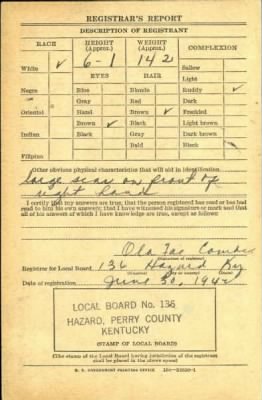 REGISTRAR'S REPORT
DESCRIPTION OF REGISTRANT
RACE HEIGHT (Approx.) WEIGHT (Approx.) COMPLEXION
White ✓ 6-1 142 Sallow
EYES HAIR Light
Negro Blue Blonde Ruddy ✓
Gray Red Dark
Oriental Hazel Brown ✓ Freckled
Brown ✓ Black Light brown
Indian Black Gray Dark brown
Bald Black
Filipino
Other obvious physical characteristics that will aid in identification
large scar on front of
right hand
I certify that my answers are true; that the person registered has read or has had
read to him his own answers; that I have witnessed his signature or mark and that
all of his answers of which I have knowledge are true, except as follows:
Ola Combs
(Signature of registrar)
Registrar for Local Board 136 Hazard Ky
(Number) (City or county) (State)
Date of registration June 30, 1942
LOCAL BOARD No. 136
HAZARD, PERRY COUNTY
KENTUCKY
(STAMP OF LOCAL BOARD)
(The stamp of the Local Board having jurisdiction of the registrant
shall be placed in the above space)
U. S. GOVERNMENT PRINTING OFFICE